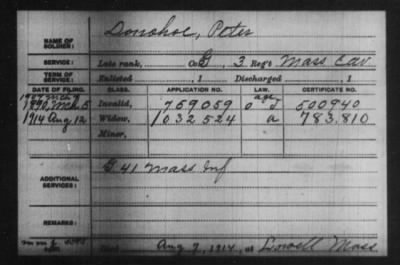 NAME OF SOLDIER: Donohoe, Peter
SERVICE: Late rank, Co. G, 3 Reg't Mass Cav
TERM OF SERVICE: Enlisted , 1 Discharged , 1
DATE OF FILING. CLASS. APPLICATION NO. LAW. CERTIFICATE NO.
age
1890, Mch 5 Invalid, 759059 o J 500940
1914 Aug 12 Widow, 1032524 a 783.810
Minor,
ADDITIONAL SERVICES: G 41 Mass Inf
REMARKS:
Died Aug 7, 1914, at Lowell Mass